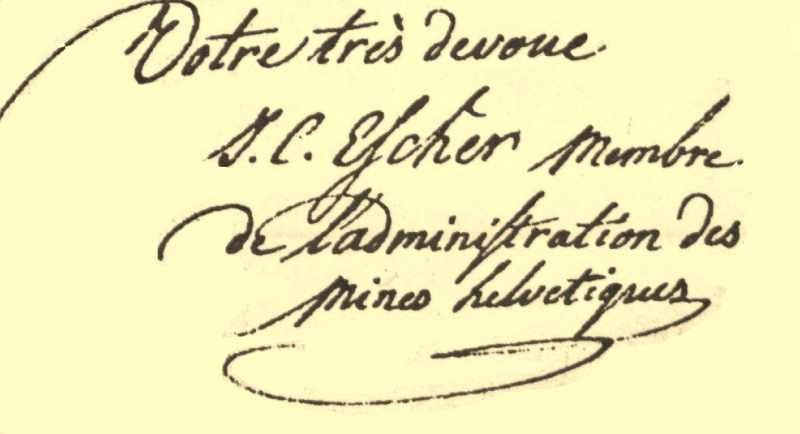 Votre très devoué
J. C. Escher Membre.
de l'administration des
mines helvetiques